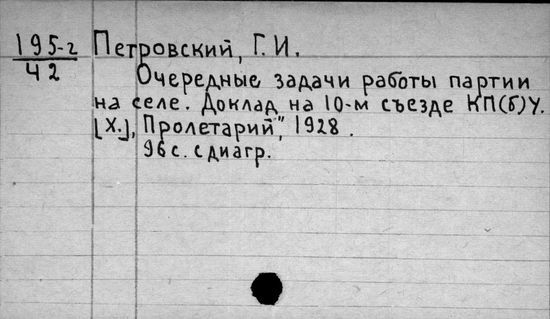 195-г Петровский, Г.И.
42
Очередные задачи работы партии
на селе. Доклад на 10-м съезде КП(б)У.
[Х.], "Пролетарий", 1928.
96 с. с диагр.